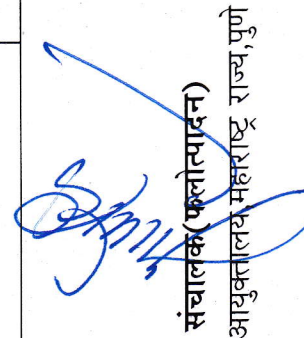 संचालक(फलोत्पादन)
आयुक्तालय, महाराष्ट्र राज्य, पुणे